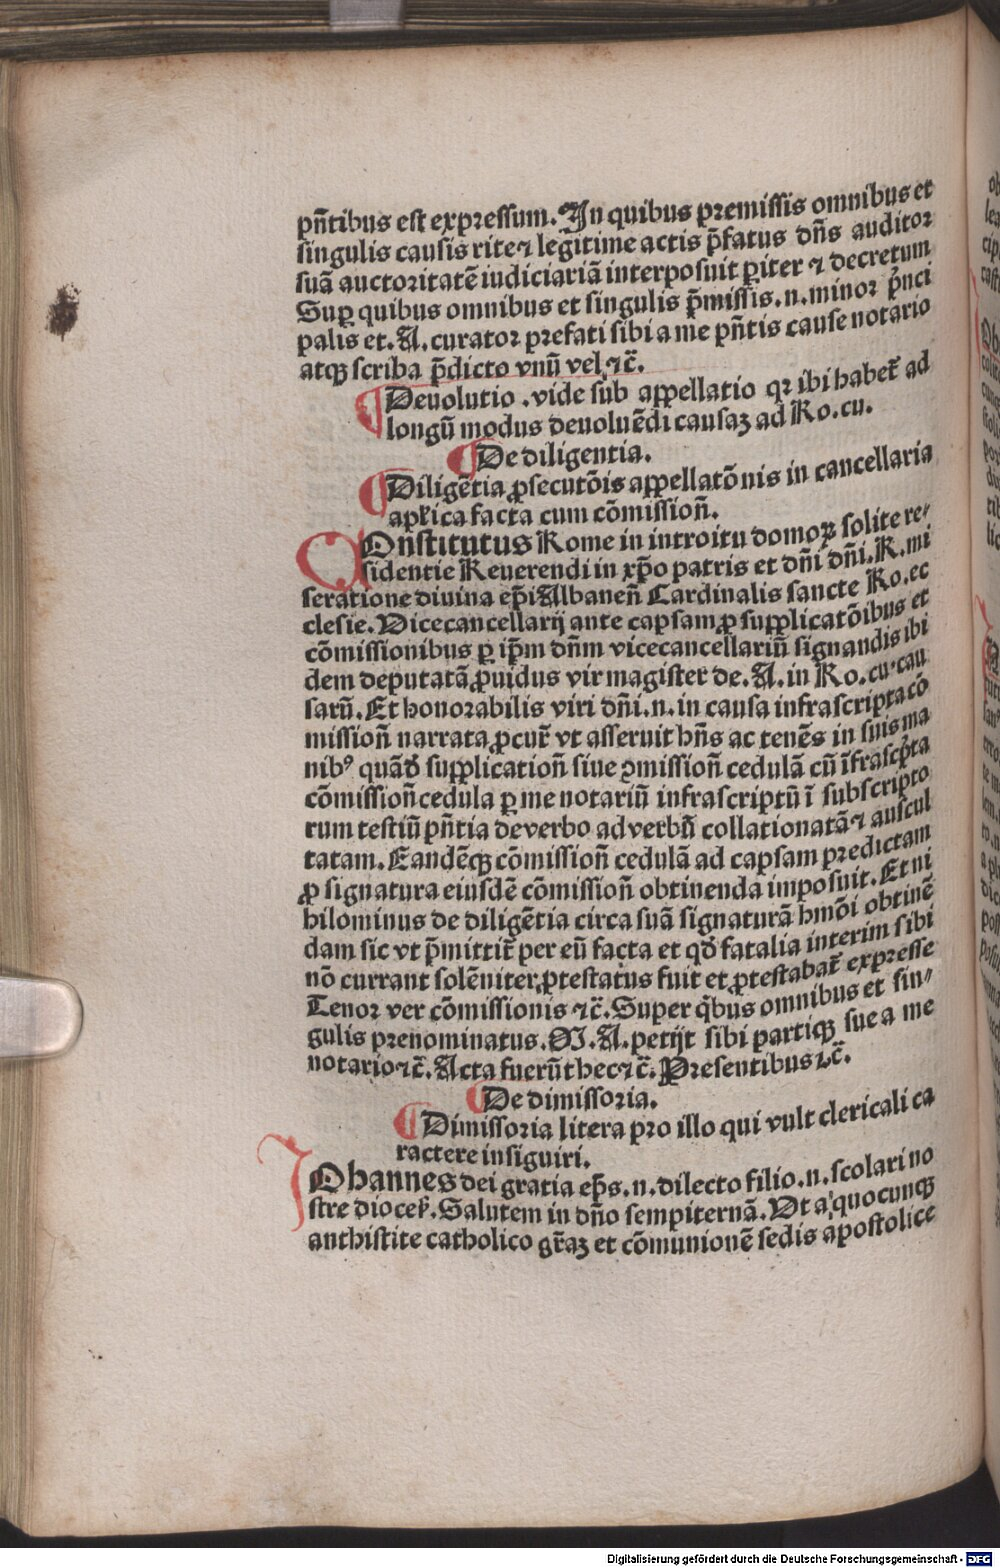 pñtibus est expressum. In quibus premissis omnibus et
singulis causis rite ⁊ legitime actis p̄fatus dñs auditor
suā auctoritatē iudiciariā interposuit ꝑiter ⁊ decretum
Suꝑ quibus omnibus et singulis p̄missis .n. minor prīnci
palis et .A. curator prefati sibi a me pñtis cause notario
atqꝫ scriba p̄dicto vnū vel ⁊c̄.
¶ Deuolutio . vide sub appellatio qꝛ ibi habet᷑ ad
longū modus deuoluēdi causaꝫ ad Ro. cu.
¶ De diligentia.
¶ Diligētia ꝓsecutōis appellatōnis in cancellaria
apl̄ica facta cum cōmissioñ.
COnstitutus Rome in introitu domoꝝ solite re⸗
sidentie Reuerendi in xp̄o patris et dñi dñi .R. mi
seratione diuina ep̄i Albaneñ Cardinalis sancte Ro. ec
clesie. Vicecancellarij ante capsam ꝓ supplicatōibus et
cōmissionibus ꝑ ip̄m dñm vicecancellariū signandis ibi
dem deputatā ꝓuidus vir magister de .A. in Ro. cu. cau
sarū. Et honorabilis viri dñi .n. in causa infrascripta cō
missioñ narrata ꝓcur̄ vt asseruit hñs ac tenēs in suis ma
nibꝰ quād̄ supplicatioñ siue ꝯmissioñ cedulā cū īfrascp̄ta
cōmissioñ cedula ꝑ me notariū infrascriptū ī subscripto
rum testiū pñtia de verbo ad verbū collationatā ⁊ auscul
tatam. Eandēqꝫ cōmissioñ cedulā ad capsam predictam
ꝓ signatura eiusdē cōmissioñ obtinenda imposuit. Et ni
hilominus de diligētia circa suā signaturā hmōi obtinē
dam sic vt p̄mittit᷑ per eū facta et qd̄ fatalia interim sibi
nō currant solēniter ꝓtestatus fuit et ꝓtestabat᷑ expresse
Tenor ver cōmissionis ⁊c̄. Super qͥbus omnibus et sin⸗
gulis prenominatus .M. A. petijt sibi partiqꝫ sue a me
notario ⁊c̄. Acta fuerūt hec ⁊c̄. Presentibus ⁊c̄.
¶ De dimissoria.
¶ Dimissoria litera pro illo qui vult clericali ca
ractere insiguiri.
IOhannes dei gratia ep̄s .n. dilecto filio .n. scolari no
stre dioceẜ. Salutem in dño sempiternā. Vt a quocunqꝫ
anthistite catholico gr̄aꝫ et cōmunionē sedis apostolice
Digitalisierung gefördert durch die Deutsche Forschungsgemeinschaft - DFG